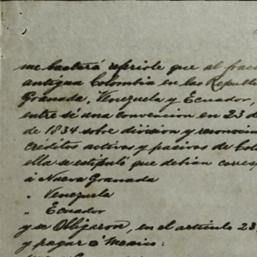 me bastará referirle que al frac
antigua Colombia en las Repúbl
Granada, Venezuela y Ecuador,
entre sí una convención en 23 d
de 1834 sobre division y reconoci
créditos activos y pasivos de Col
ella se estipuló que debian corres
á Nueva Granada
" Venezuela
" Ecuador
y se obligaron, en el artículo 23
y pagar á Mexico: